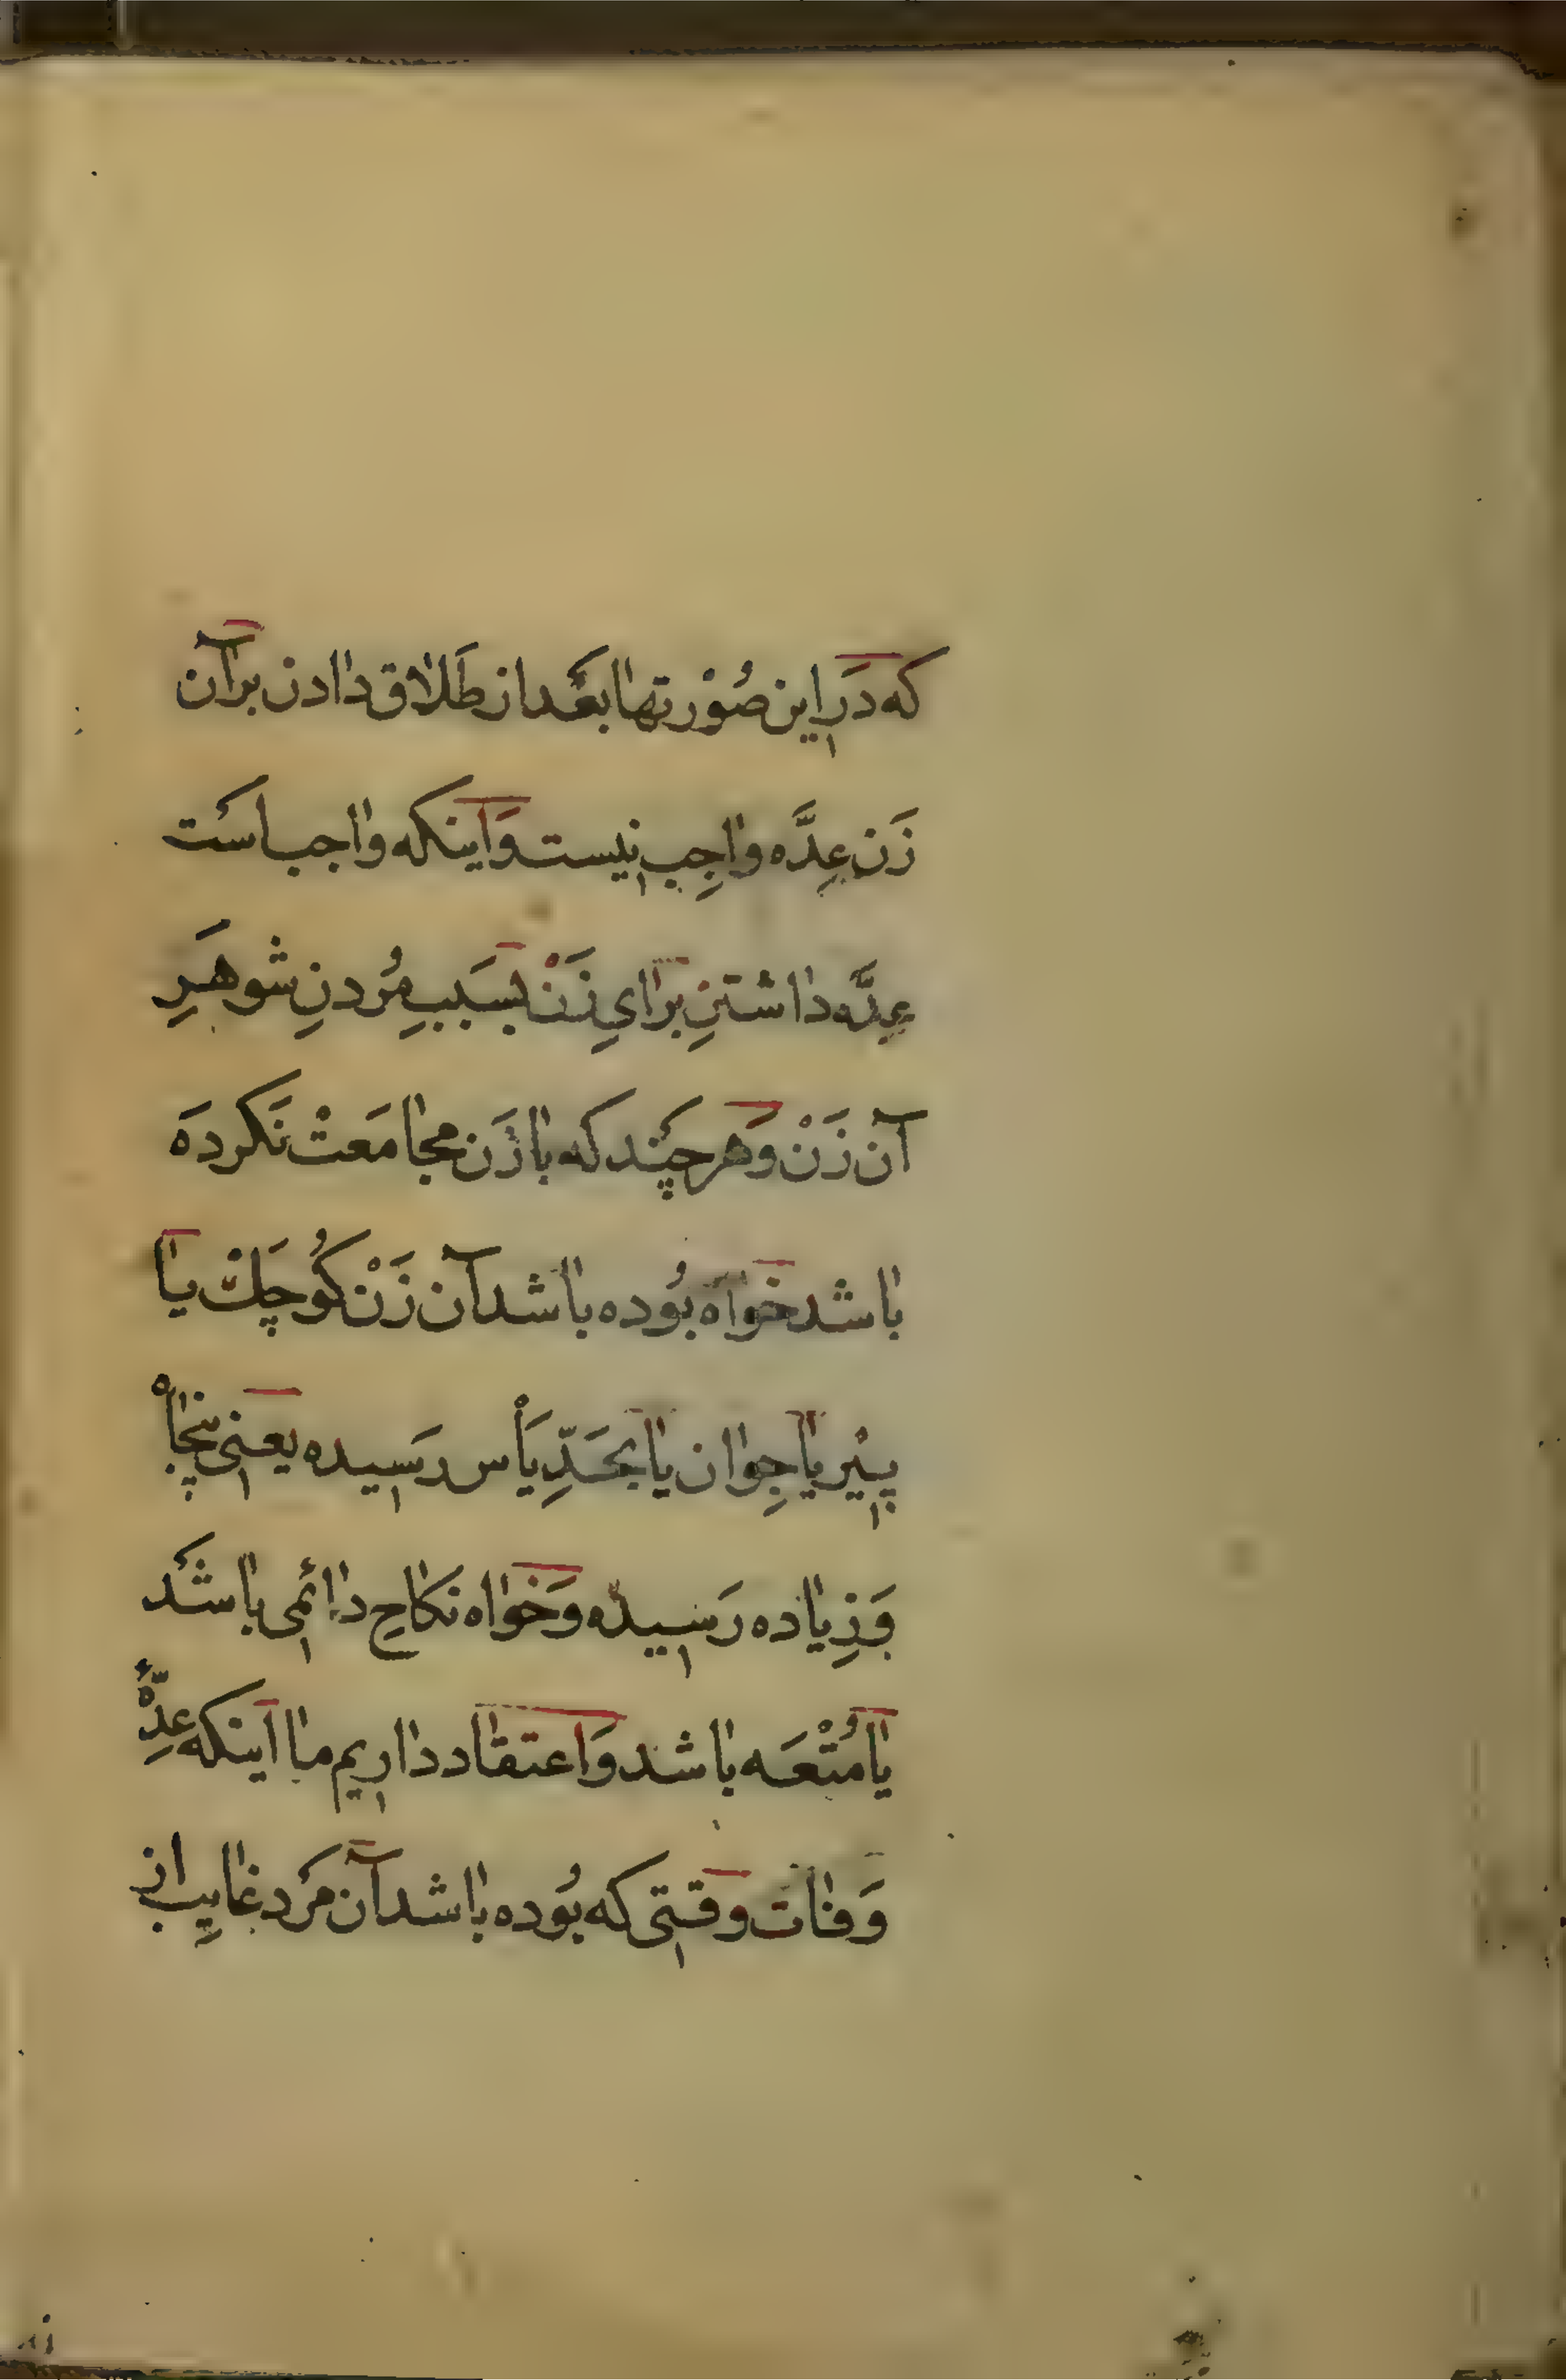 که دَر اِین صُوْرتها بَعْد از طَلاق دادن بر آن
زَن عِدَّه واجِب نِیست وَاینکه واجب اسَت
عِدَّه داشتنِ برایِ زَنْ بسَبَبِ مُردنِ شوهَرِ
آن زَنْ وَهر چَند که با زَن مجامَعتْ نَکرده
باشد خَواه بُوده باشد آن زَنْ کُوچَكْ یا
پیْر یا جِوان یا بحَدِّ یَأْس رَسِیده یعنِی پنجاهْ
وَ زِیاده رَسِیده وَخَواه نکاحِ دائمِی باشَد
یا مُتْعَه باشد وَاعتقاد دارِیم ما اینکه عِدّۀ
وَفات وقتِی که بُوده باشد آن مَرد غایِب از